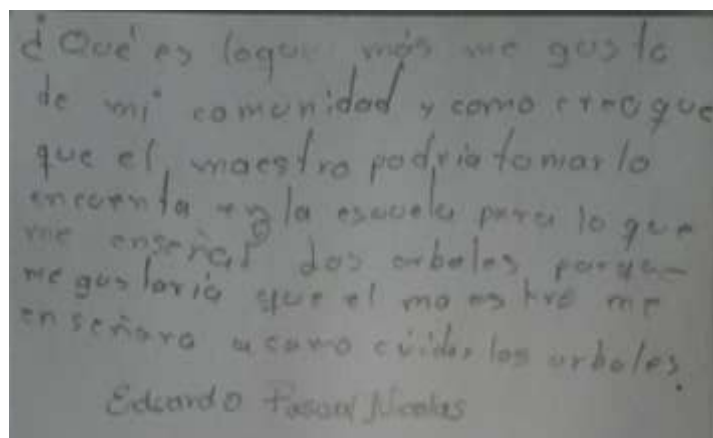 ¿Qué es loque más me gusta
de mi comunidad y como creo que
que el maestro podria tomarlo
encuenta en la escuela para lo que
me enseña? dos arboles porque
me gustaria que el maestro me
enseñara a como cuidar los arboles.
Eduardo Pascual Nicolas